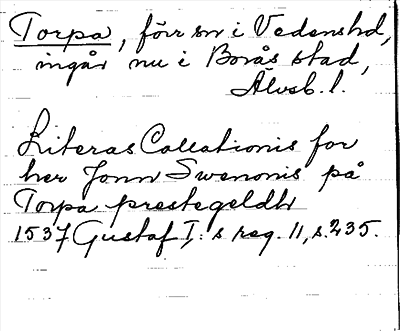 Torpa, förr sn i Vedens hd,
ingår nu i Borås stad,
Älvsb. l.
Literas Collationis for
her Jonn Swenonis på
Torpa prestegeldh
1537 Gustaf I:s reg. 11, s. 235.